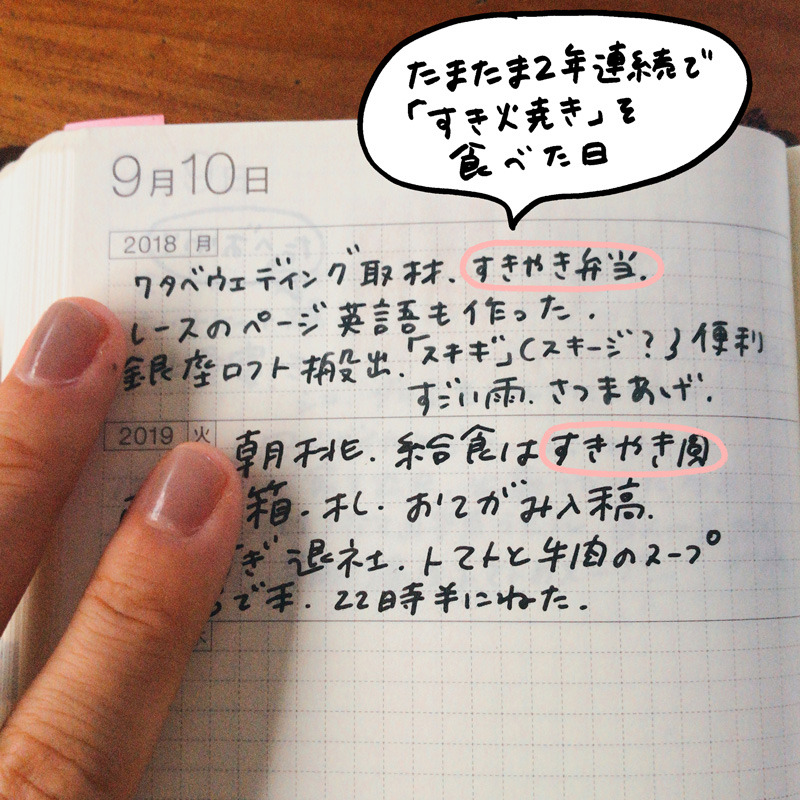 たまたま2年連続で
「すき火焼き」を
食べた日
9月10日
2018 月
ワタベウェディング取材.すきやき弁当.
レースのページ英語も作った.
銀座ロフト搬出.「スキギ」(スキージ?)便利
すごい雨.さつまあげ.
2019 火
朝桃.給食はすきやき
箱.札.おてがみ入稿.
退社.トマトと牛肉のスープ
22時半にねた.